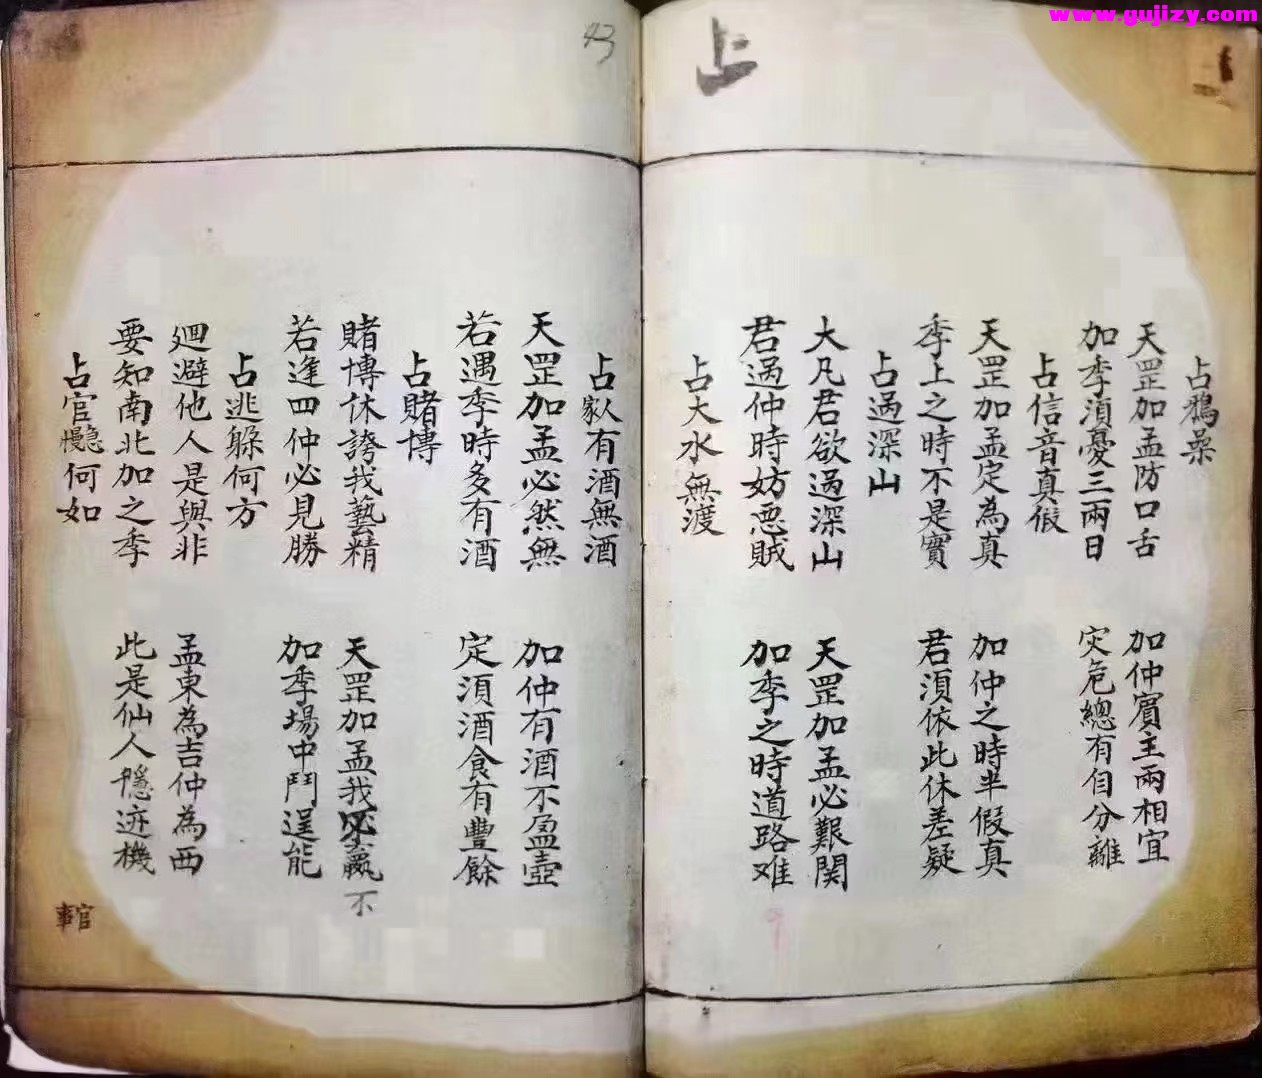 www.gujizy.com
占
43
占鴉噪
天罡加孟防口舌 加仲賓主兩相宜
加季須憂三兩日 灾危總有自分離
占信音真假
天罡加孟定為真 加仲之時半假真
季上之時不是實 君須依此休差疑
占過深山
大凡君欲過深山 天罡加孟必艱関
君過仲時妨悪賊 加季之時道路难
占大水無渡
占家人有酒無酒
天罡加孟必然無 加仲有酒不盈壺
若遇季時多有酒 定須酒食有豐餘
占賭博
賭博休誇我藝精 天罡加孟我必贏 不
若逢四仲必見勝 加季場中鬥逞能
占逃躲何方
廻避他人是與非 孟東為吉仲為西
要知南北加之季 此是仙人隱迹機
占官何如
官事